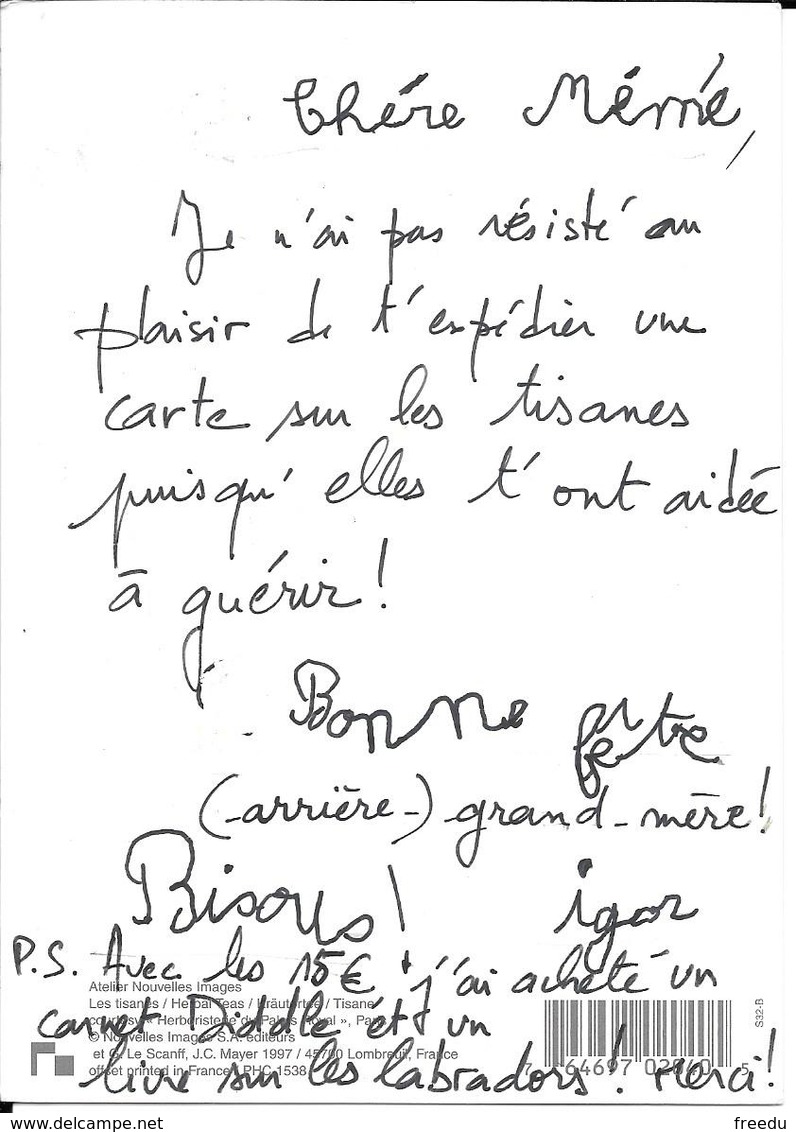 Chére Mémé,
Je n'ai pas résisté au
plaisir de t'expédier une
carte sur les tisanes
puisqu'elles t'ont aidée
à guérir!
Bonne fête
(-arrière-) grand-mère!
Bisous! igor
P.S. Avec les 15€ j'ai acheté un
Atelier Nouvelles Images
Les tisanes / Herbal Teas / Kräutertee / Tisane
carnet Diddle et un
courtesy « Herboristerie du Palais Royal », Paris
© Nouvelles Images S.A. éditeurs
et G. Le Scanff, J.C. Mayer 1997 / 45700 Lombreuil, France
livre sur les labradors! Merci!
offset printed in France / PHC 1538
7 64697 02840 5
S32-B
freedu
www.delcampe.net